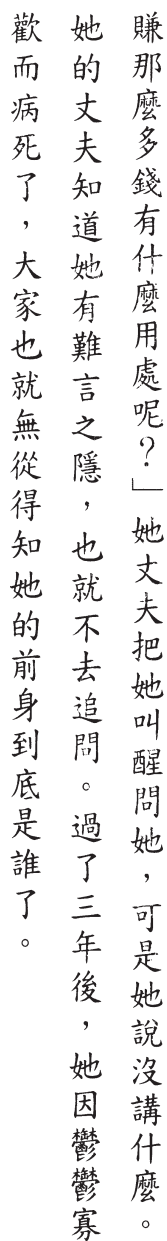 賺那麼多錢有什麼用處呢？」她丈夫把她叫醒問她，可是她說沒講什麼。
她的丈夫知道她有難言之隱，也就不去追問。過了三年後，她因鬱鬱寡
歡而病死了，大家也就無從得知她的前身到底是誰了。